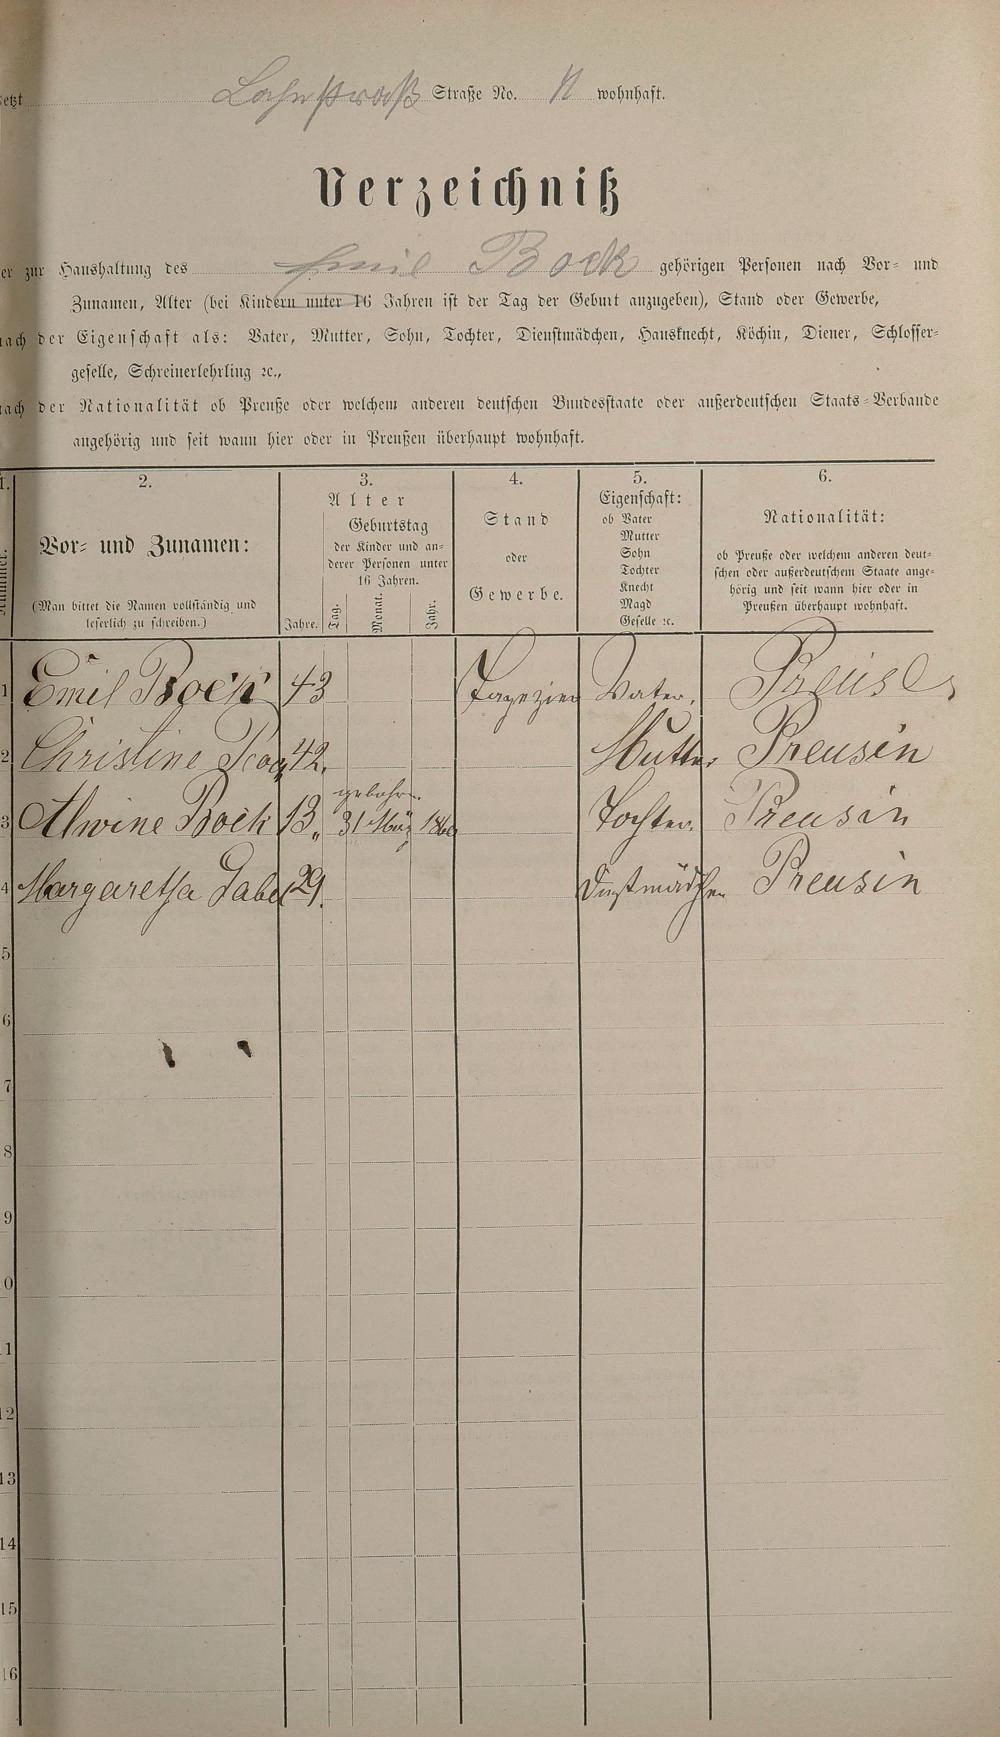 etzt Lahnstraß Straße No. wohnhaft.
Verzeichniß
er zur Haushaltung des Emil Bock gehörigen Personen nach Vor- und
Zunamen, Alter (bei Kindern unter 16 Jahren ist der Tag der Geburt anzugeben), Stand oder Gewerbe,
ach der Eigenschaft als: Vater, Mutter, Sohn, Tochter, Dienstmädchen, Hausknecht, Köchin, Diener, Schlosser-
geselle, Schreinerlehrling ꝛc.,
ach der Nationalität ob Preuße oder welchem anderen deutschen Bundesstaate oder außerdeutschen Staats-Verbande
angehörig und seit wann hier oder in Preußen überhaupt wohnhaft.
1. 2. 3. 4. 5. 6.
Nummer.
Vor- und Zunamen:
(Man bittet die Namen vollständig und
leserlich zu schreiben.)
Alter
Jahre.
Geburtstag
der Kinder und an-
derer Personen unter
16 Jahren.
Tag. Monat. Jahr.
Stand
oder
Gewerbe.
Eigenschaft:
ob Vater
Mutter
Sohn
Tochter
Knecht
Magd
Geselle ꝛc.
Nationalität:
ob Preuße oder welchem anderen deut-
schen oder außerdeutschem Staate ange-
hörig und seit wann hier oder in
Preußen überhaupt wohnhaft.
1 Emil Bock 43 Tapezier Vater. Preuse
2 Christine Boc 42. Mutter Preusin
gebohren
3 Alwine Bock 13 31 März Tochter. Preusin
4 Margaretha Gabel 29. Dinstmädchen Preusin
5
6
7
8
9
0
11
12
13
14
15
16